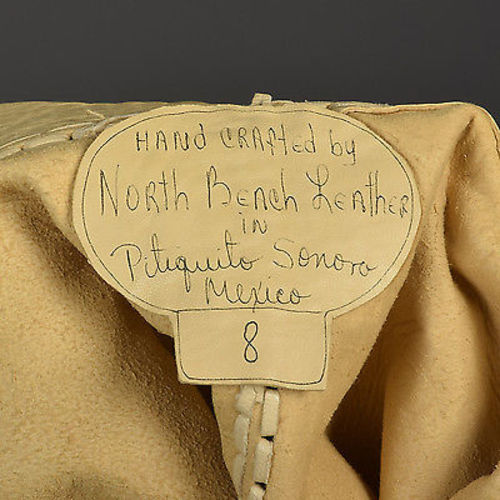 HAND CRAfted by
North Beach Leather
IN
Pitiquito Sonora
Mexico
8